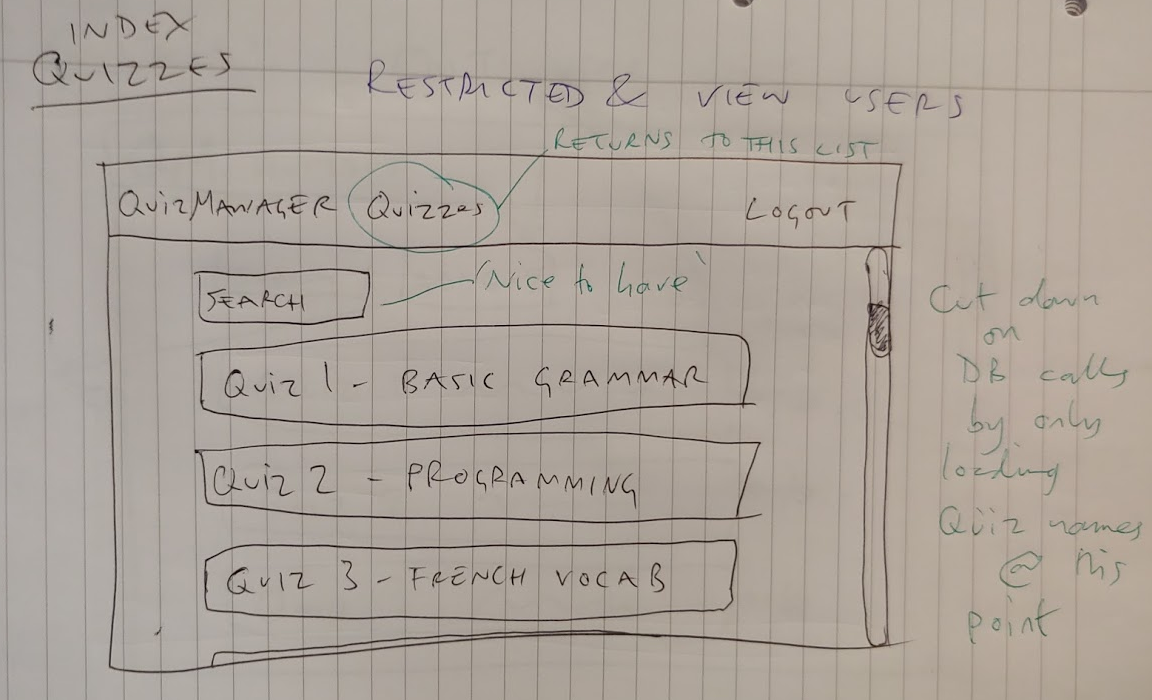 INDEX
QUIZZES
RESTRICTED & VIEW USERS
RETURNS TO THIS LIST
QUIZMANAGER Quizzes LOGOUT
SEARCH
'Nice to have'
Quiz 1 - BASIC GRAMMAR
Quiz 2 - PROGRAMMING
QUIZ 3 - FRENCH VOCAB
Cut down
on
DB calls
by only
loading
Quiz names
@ this
point